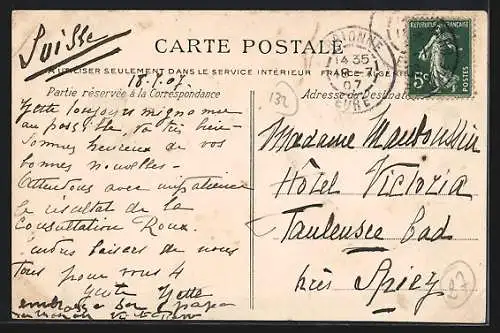 Suisse
CARTE POSTALE
A UTILISER SEULEMENT DANS LE SERVICE INTÉRIEUR FRANCE ALGÉRIE
Partie réservée à la Correspondance
Adresse du Destinataire
18.7.07.
132
14 35
07
EURE
RÉPUBLIQUE FRANÇAISE
5c
POSTES
Yette toujours mignonne
au possible, va très bien
Sommes heureux de vos
bonnes nouvelles.
Attendons avec impatience
le résultat de la
Consultation Roux.
Tendres baisers de nous
tous pour vous 4
Yette
embrasse son papa
Madame
Hôtel Victoria
Bad
près Spiez